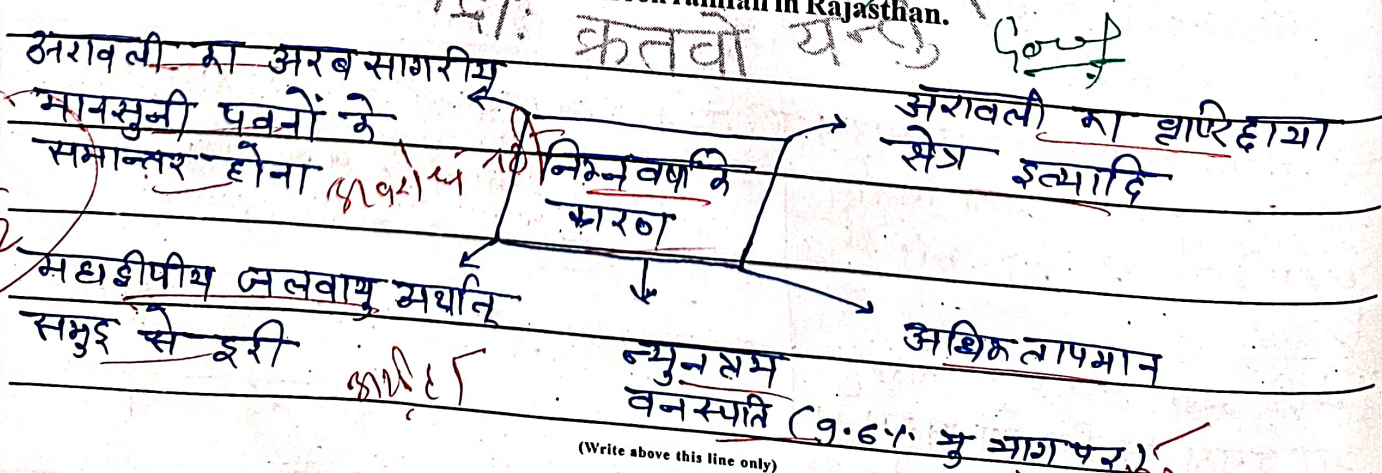 rainfall in Rajasthan.
क्रतवो यन्तु
Good
अरावली का अरब सागरीय
मानसुनी पवनों के
समान्तर होना
अवरोध नहीं
निम्न वर्षा के
कारण
अरावली का वृष्टिछाया
क्षेत्र इत्यादि
महाद्वीपीय जलवायु अर्थात्
समुद्र से दूरी
अधिक तापमान
न्युनतम
वनस्पति (9.6% भू भाग पर)
(Write above this line only)